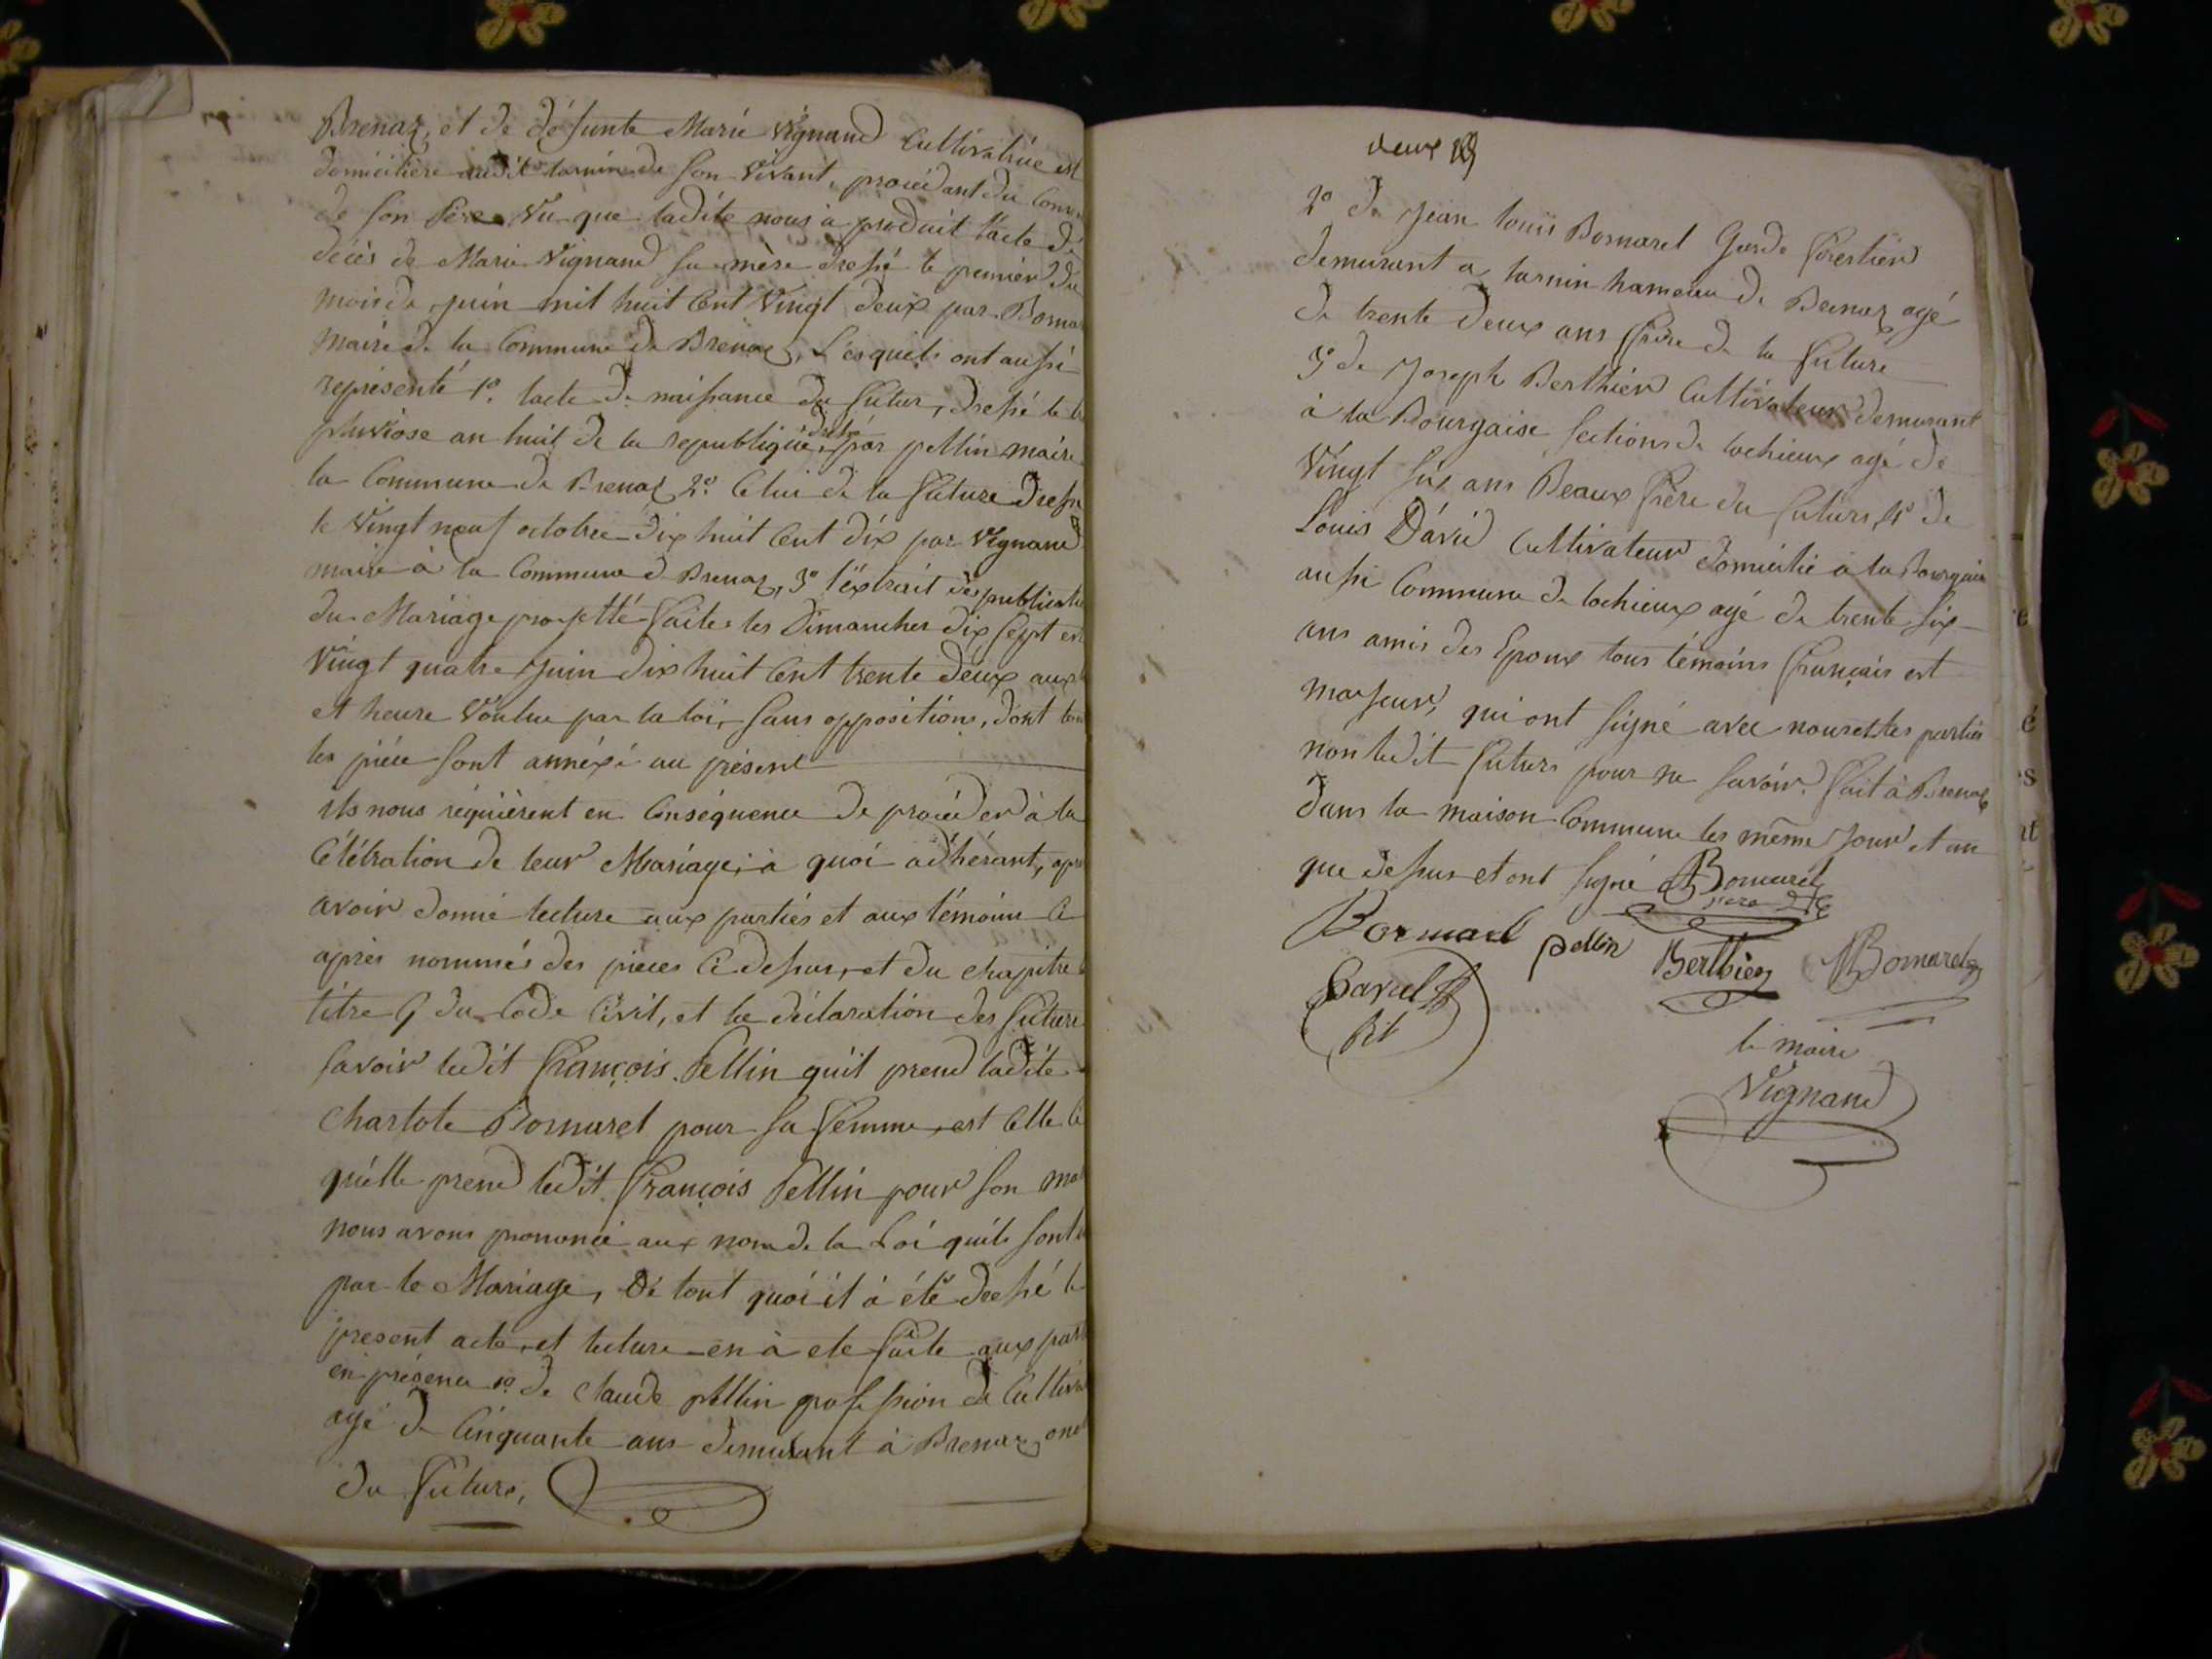 Brenaz, et de défunte Marie Vignand Cultivatrice est
domicilière audit tarnin de son vivant, procédant du
de son Père Vu que ladite nous à produit l'acte de
décès de Marie Vignand sa mère dressé le premier du
mois de juin mil huit Cent Vingt deux par
maire de la Commune de Brenaz, Lesquels ont aussi
représenté 1º. lacte de naissance du futur, dressé le
pluviose an huit de la republique, dressé par pellin maire
la Commune de Brenaz 2º. Celui de la future
le Vingt neuf octobre dix huit Cent dix par Vignand
maire à la Commune de Brenaz, 3º l'extrait des
du Mariage projetté faites les Dimanches dix sept et
Vingt quatre juin dix huit Cent trente deux aux
et heure Voulue par la loi, sans oppositions, dont
les pièce sont annéxé au présent
ils nous requièrent en Conséquence de procéder à la
Célébration de leur Mariage; à quoi adhérant,
avoir donné lecture aux parties et aux témoins Ci
après nommés des pièces Ci dessus, et du chapitre
titre 5 du Code Civil, et la déclaration des future
savoir ledit François Pellin qu'il prend ladite
Charlote Bornarel pour sa femme, est Celle Ci
qu'elle prend ledit François Pellin pour son
nous avons prononcé aux nom de la Loi quils sont
par le Mariage, De tout quoi il à été dressé le
present acte, et lecture en à ete faite aux
en présence 1º. de claude pellin profession de
agé de Cinquante ans demeurant à Brenaz,
du future,
deux
2º de Jean louis Bornarel Garde forestier
demeurant a tarnin hameau de Brenaz agé
de trente deux ans frère de la future
3º de Joseph Berthier Cultivateur demeurant
à la Bourgaise sections de lochieux agé de
Vingt six ans Beaux frère du futurs, 4º de
Louis David Cultivateur domicilié à la
aussi Commune de lochieux agé de trente six
ans amis des Epoux tous témoins français est
majeur, qui ont signé avec nous et les parties
non ledit futurs pour ne savoir. fait à Brenaz
dans la maison Commune les même jour et an
que dessus et ont signé Bornarel
Bornarel pellin Berthier Bornarel
David
le maire
Vignand